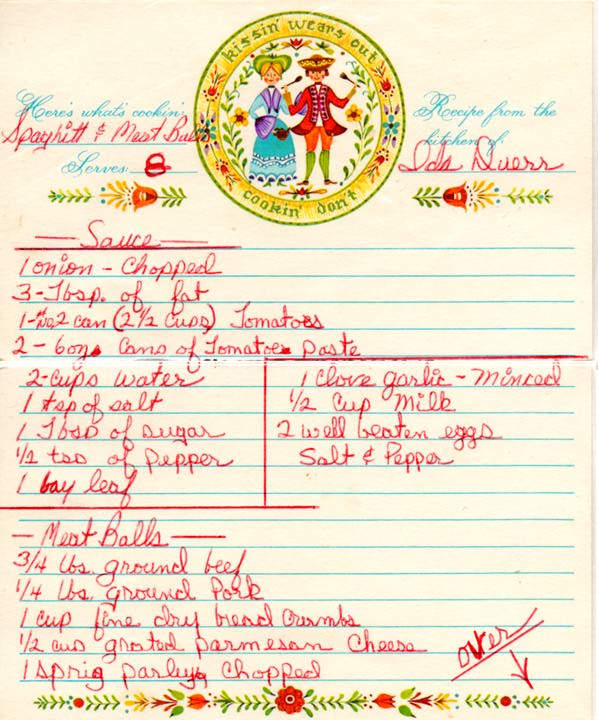 kissin' wears out
cookin' don't
Here's what's cookin':
Spaghitt & Meat Balls
Serves: 8
Recipe from the
kitchen of:
Ida Duerr
— Sauce —
1 onion - Chopped
3 - Tbsp. of fat
1 - No. 2 can (2 1/2 cups) Tomatoes
2 - 6 oz. Cans of Tomatoe paste
2 - cups water
1 tsp of salt
1 Tbsp of sugar
1/2 tsp of pepper
1 bay leaf
1 clove garlic - Minced
1/2 Cup Milk
2 well beaten eggs
Salt & Pepper
— Meat Balls —
3/4 lbs. ground beef
1/4 lbs. ground Pork
1 cup fine dry bread crumbs
1/2 cup grated parmesan Cheese
1 sprig parley, Chopped
over